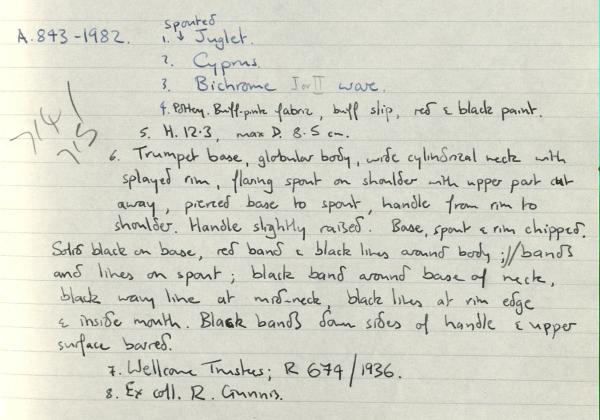 spouted
A.843-1982. 1. ↓ Juglet.
2. Cyprus.
3. Bichrome I or II ware.
714/
715
4. Pottery. Buff-pink fabric, buff slip, red & black paint.
5. H. 12.3, max D. 8.5 cm.
6. Trumpet base, globular body, wide cylindrical neck with
splayed rim, flaring spout on shoulder with upper part cut
away, pierced base to spout, handle from rim to
shoulder. Handle slightly raised. Base, spout & rim chipped.
Solid black on base, red band & black lines around body; // bands
and lines on spout; black band around base of neck,
black wavy line at mid-neck, black lines at rim edge
& inside mouth. Black bands down sides of handle & upper
surface barred.
7. Wellcome Trustees; R 674/1936.
8. Ex coll. R. Gunnis.